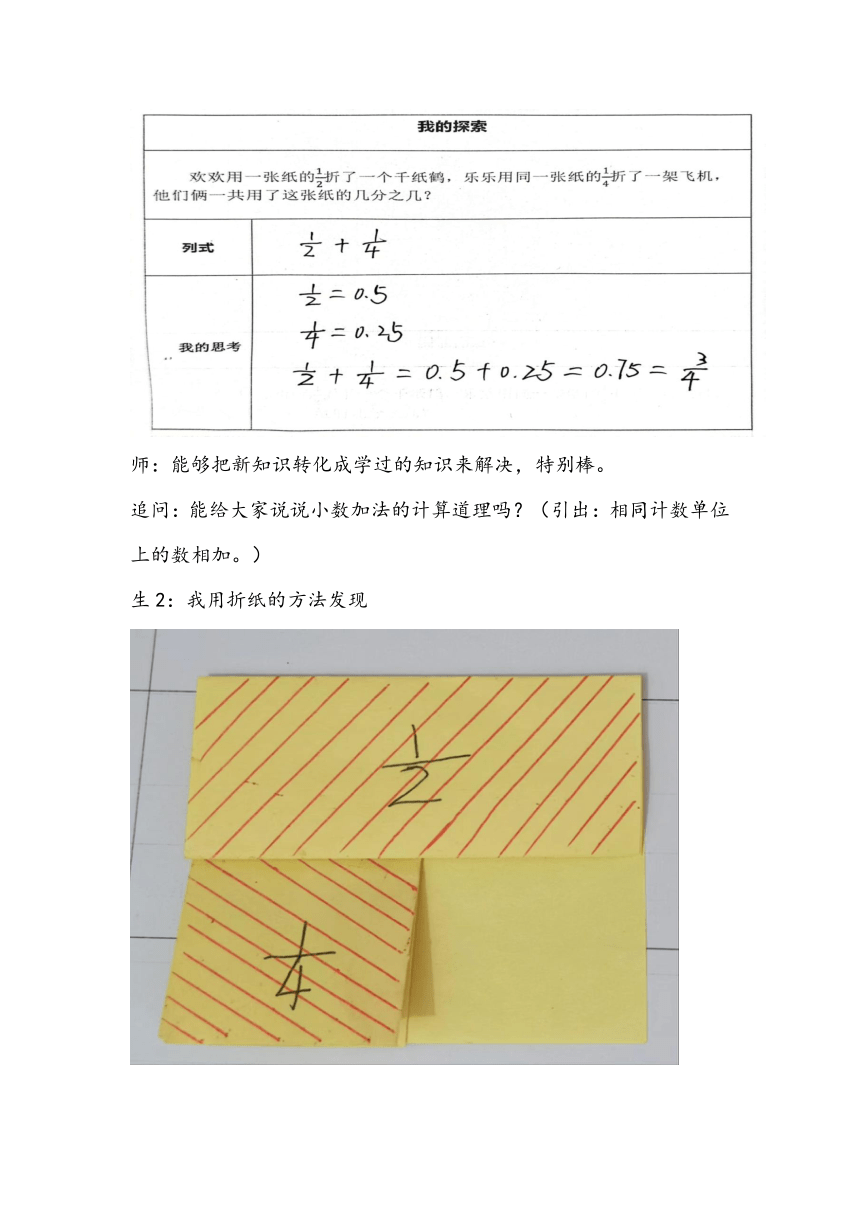 我的探索
欢欢用一张纸的1/2折了一个千纸鹤，乐乐用同一张纸的1/4折了一架飞机，
他们俩一共用了这张纸的几分之几？
列式
1/2 + 1/4
我的思考
1/2 = 0.5
1/4 = 0.25
1/2 + 1/4 = 0.5 + 0.25 = 0.75 = 3/4
师：能够把新知识转化成学过的知识来解决，特别棒。
追问：能给大家说说小数加法的计算道理吗？（引出：相同计数单位
上的数相加。）
生2：我用折纸的方法发现
1/2
1/4